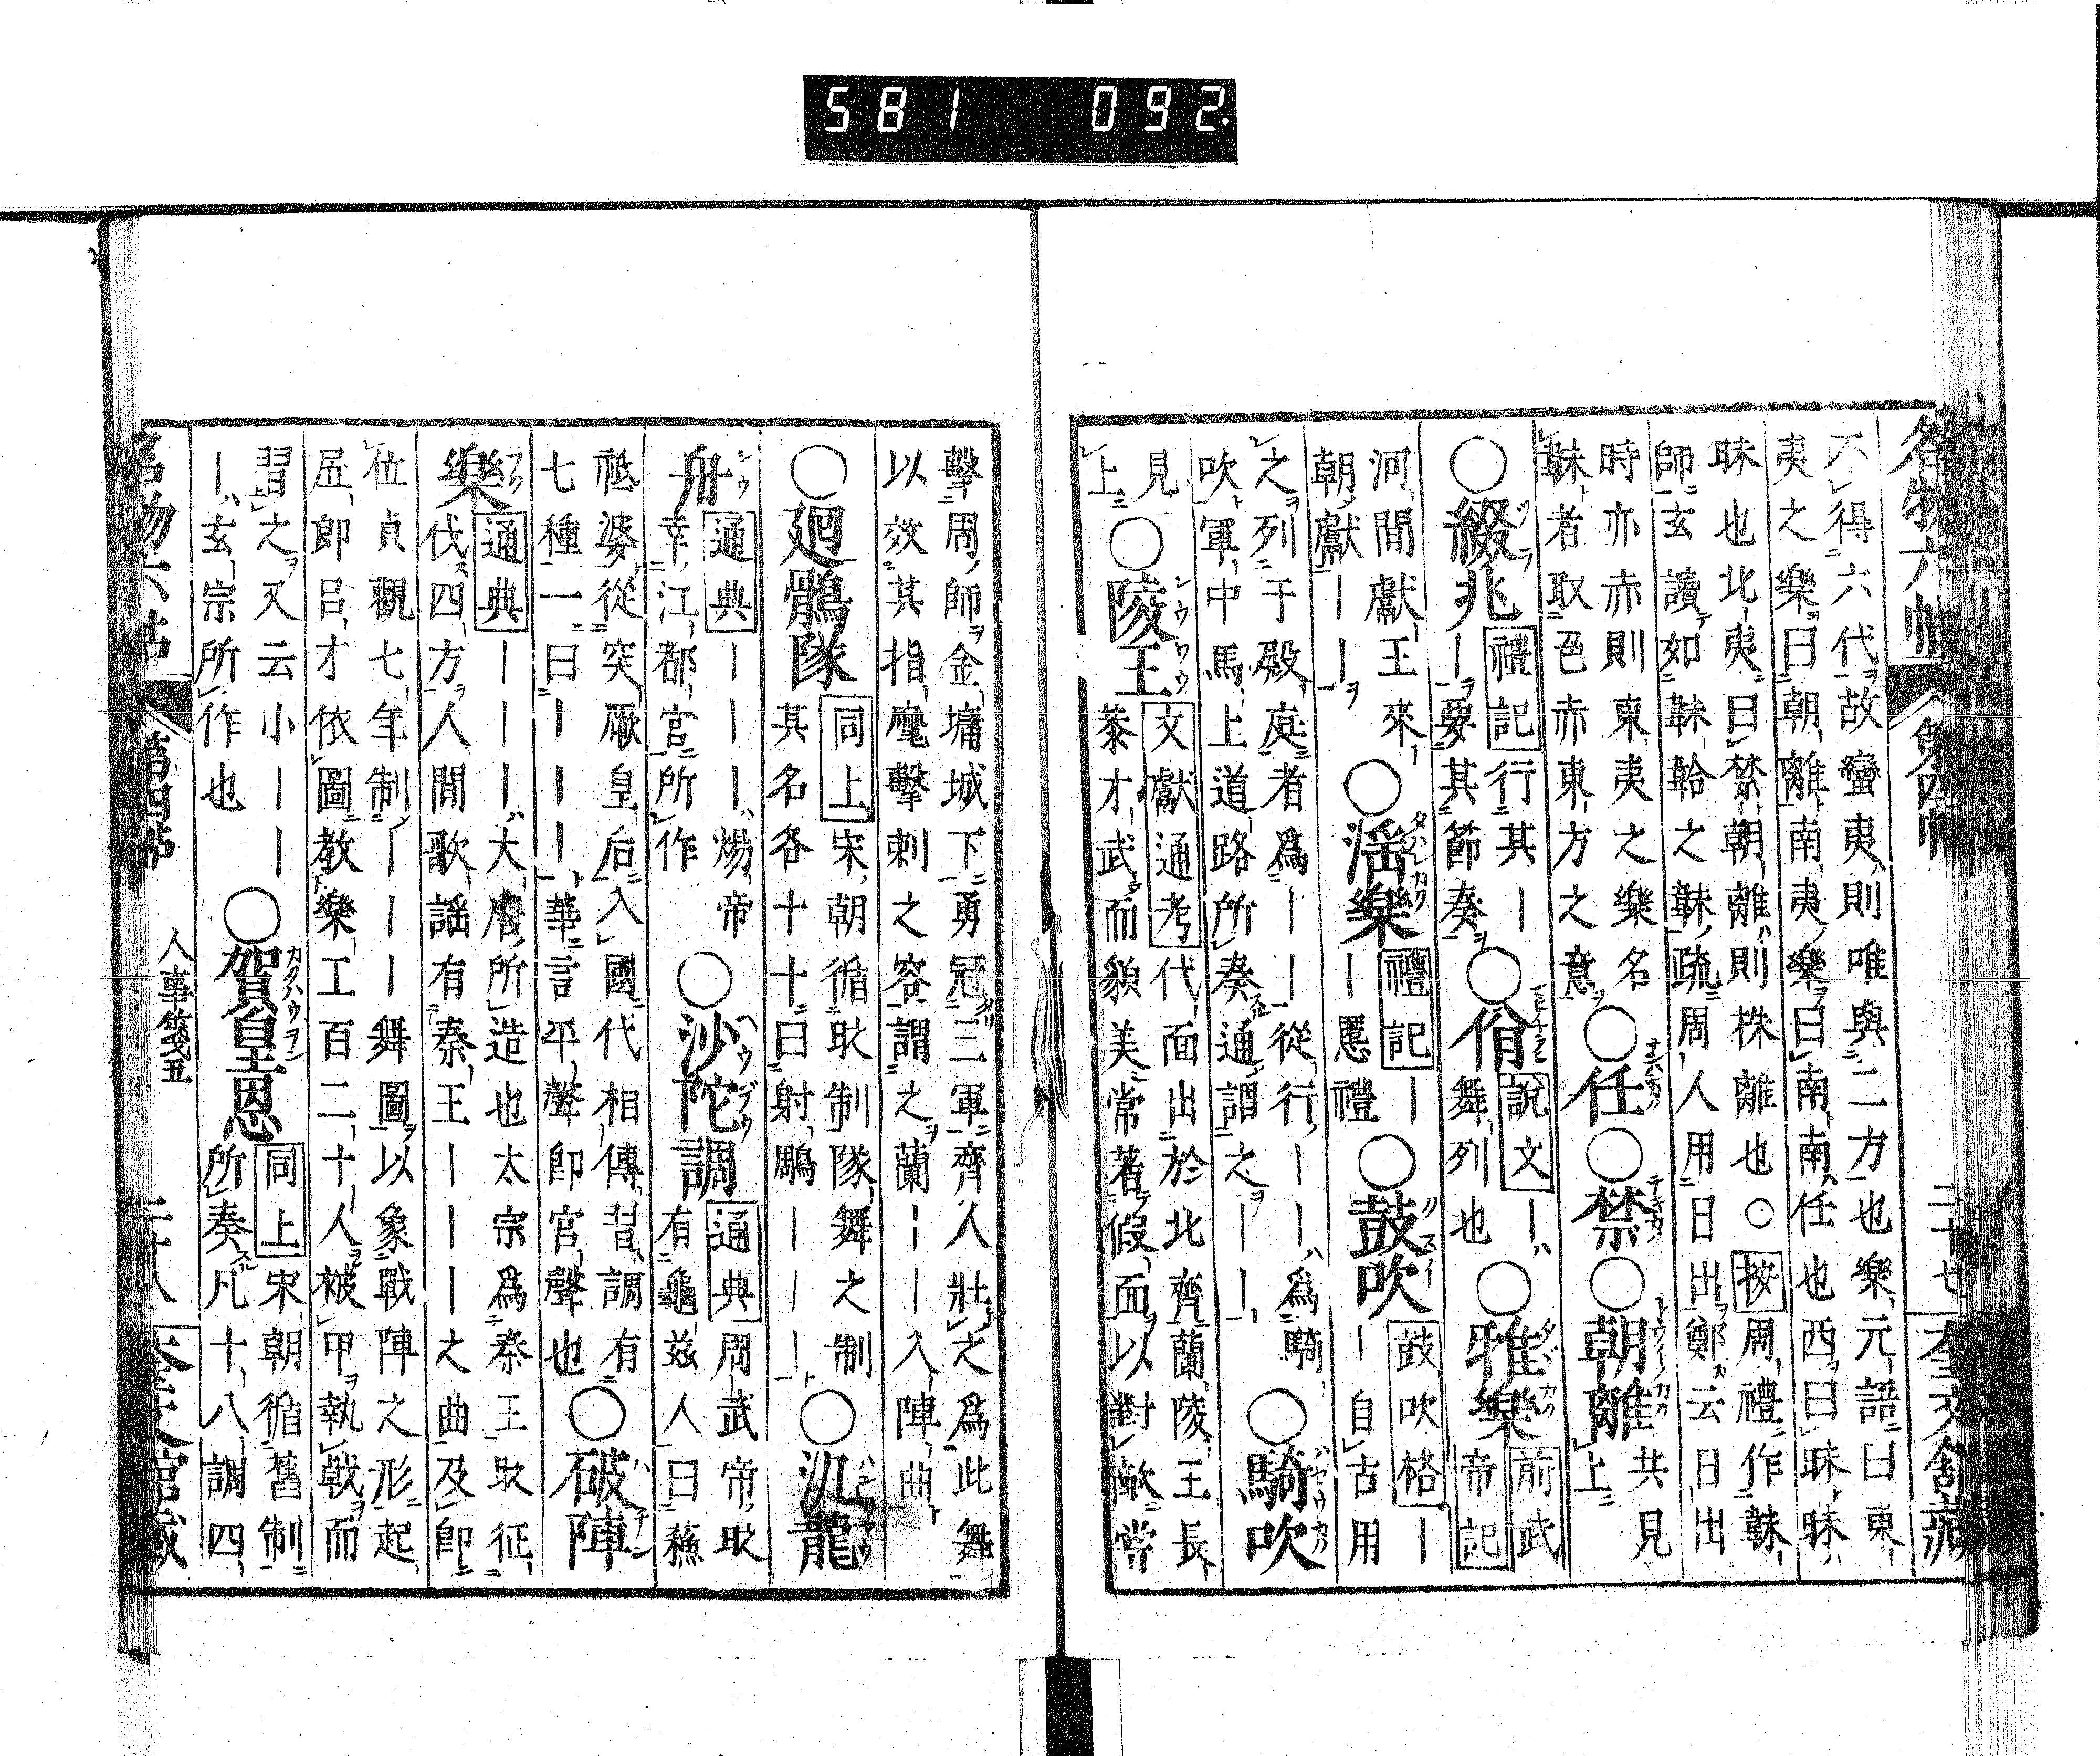 581 092.
名物六帖 第四帖 二十七 奎文館藏
不得六代故蠻夷則唯與二方也樂元語曰東
夷之樂曰朝離南夷樂曰南南任也西曰昧昧
昧也北夷曰禁朝離則株離也○按周禮作韎
師玄讀如韎韐之韎疏周人用日出鄭云日出
時亦赤則東夷之樂名
韎者取色赤東方之意○任○禁○朝離共見上
○綴兆禮記行其ー
ー要其節奏○佾說文ー
舞列也○雅樂前武帝記
河間獻王來
朝獻ーーー○淫樂禮記ー
ー慝禮○鼓吹鼓吹格ー
ー自古用
之列于殿庭者爲ーー從行ーー爲騎
吹軍中馬上道路所奏通謂之ーー○騎吹
見上○陵王文獻通考代面出於北齊蘭陵王長
恭才武而貌美常著假面以對敵嘗
擊周師金墉城下勇冠三軍齊人壯之爲此舞
以效其指麾擊刺之容謂之蘭ーー入陣曲
○廻鶻隊同上宋朝循取制隊舞之制
其名各十十曰射鵰ーーー○汎龍
舟通典ーーー煬帝
幸江都官所作○沙陀調通典周武帝時
有龜茲人曰蘇
祗婆從突厥皇后入國代相傳習調有
七種一曰ーーー華言平聲卽宮聲也○破陣
樂通典ーーー大唐所造也太宗爲秦王時征
伐四方人間歌謠有秦王ーーー之曲及卽
位貞觀七年制ーーー舞圖以象戰陣之形起
居郎呂才依圖敎樂工百二十人被甲執戟而
習之又云小ーー
ー玄宗所作也○賀皇恩同上宋朝循舊制
所奏凡十八調四
名物六帖 第四帖 人事箋五 二十八 奎文館藏